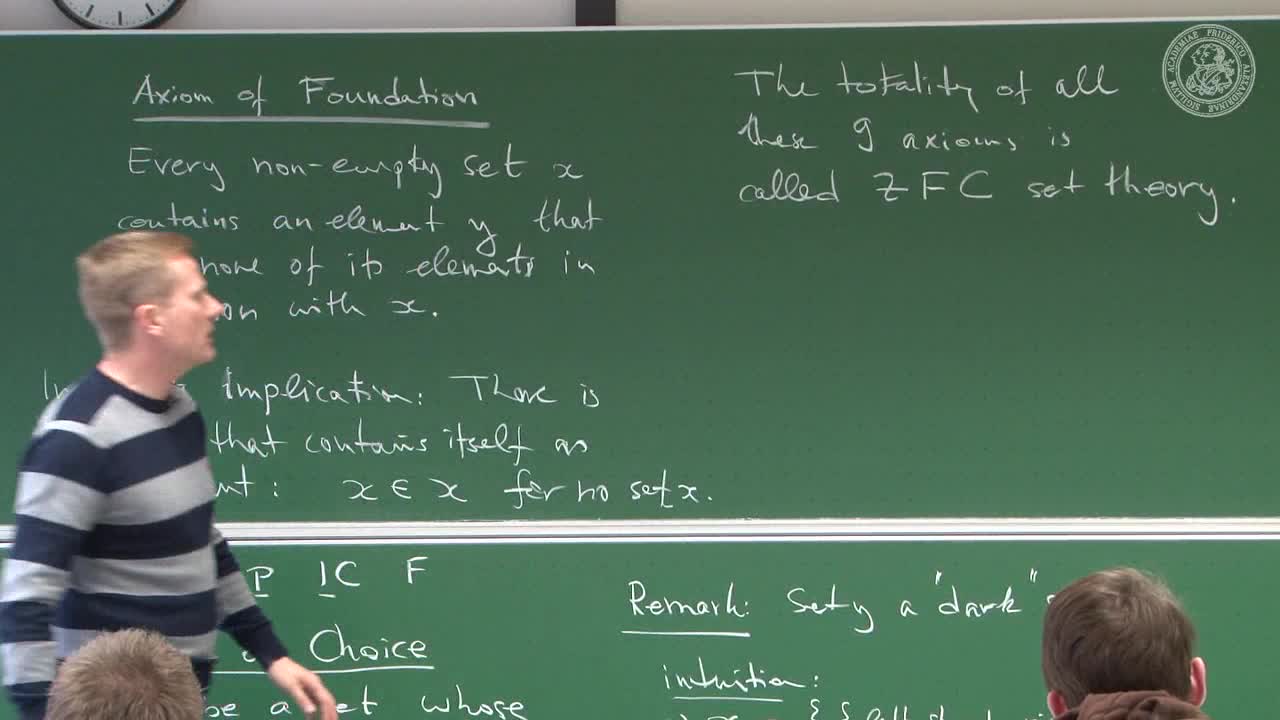 Axiom of Foundation
Every non-empty set x
contains an element y that
none of its elements in
with x.
Implication: There is
that contains itself as
: x ∈ x for no set x.
The totality of all
these 9 axioms is
called ZFC set theory.
P IC F
Choice
be a set whose
Remark: Set y a "dark"
intuition:
ACADEMIAE FRIDERICO ALEXANDRINAE SIGILLUM